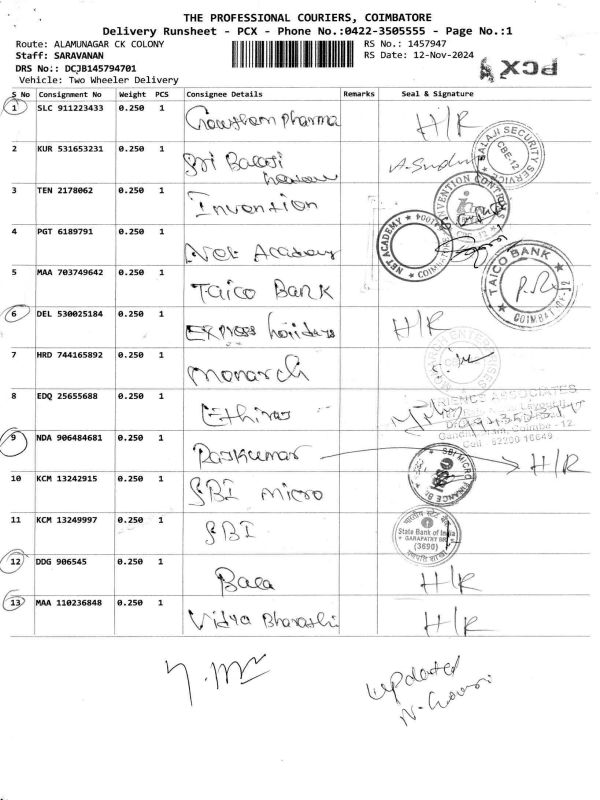 THE PROFESSIONAL COURIERS, COIMBATORE
Delivery Runsheet - PCX - Phone No.:0422-3505555 - Page No.:1
Route: ALAMUNAGAR CK COLONY RS No.: 1457947
Staff: SARAVANAN RS Date: 12-Nov-2024
DRS No.: DCJB145794701 PCX
Vehicle: Two Wheeler Delivery
S No Consignment No Weight PCS Consignee Details Remarks Seal & Signature
1 SLC 911223433 0.250 1 Gowtham Pharma H/R
2 KUR 531653231 0.250 1 Sri Balaji
BALAJI SECURITY SERVICE CBE-12
3 TEN 2178062 0.250 1 Invention
INVENTION
4 PGT 6189791 0.250 1 Net Academy
NET ACADEMY
5 MAA 703749642 0.250 1 Taico Bank
TAICO BANK
6 DEL 530025184 0.250 1 Express holidays H/R
7 HRD 744165892 0.250 1 Monarch
8 EDQ 25655688 0.250 1
ASSOCIATES
9 NDA 906484681 0.250 1 Rajkumar H/R
10 KCM 13242915 0.250 1 SBI Micro
SBI MICRO FINANCE
11 KCM 13249997 0.250 1 SBI
भारतीय स्टेट बैंक
State Bank of India
GANAPATHY BR
(3690)
12 DDG 906545 0.250 1 Bala H/R
13 MAA 110236848 0.250 1 Vidya Bharathi H/R
updated